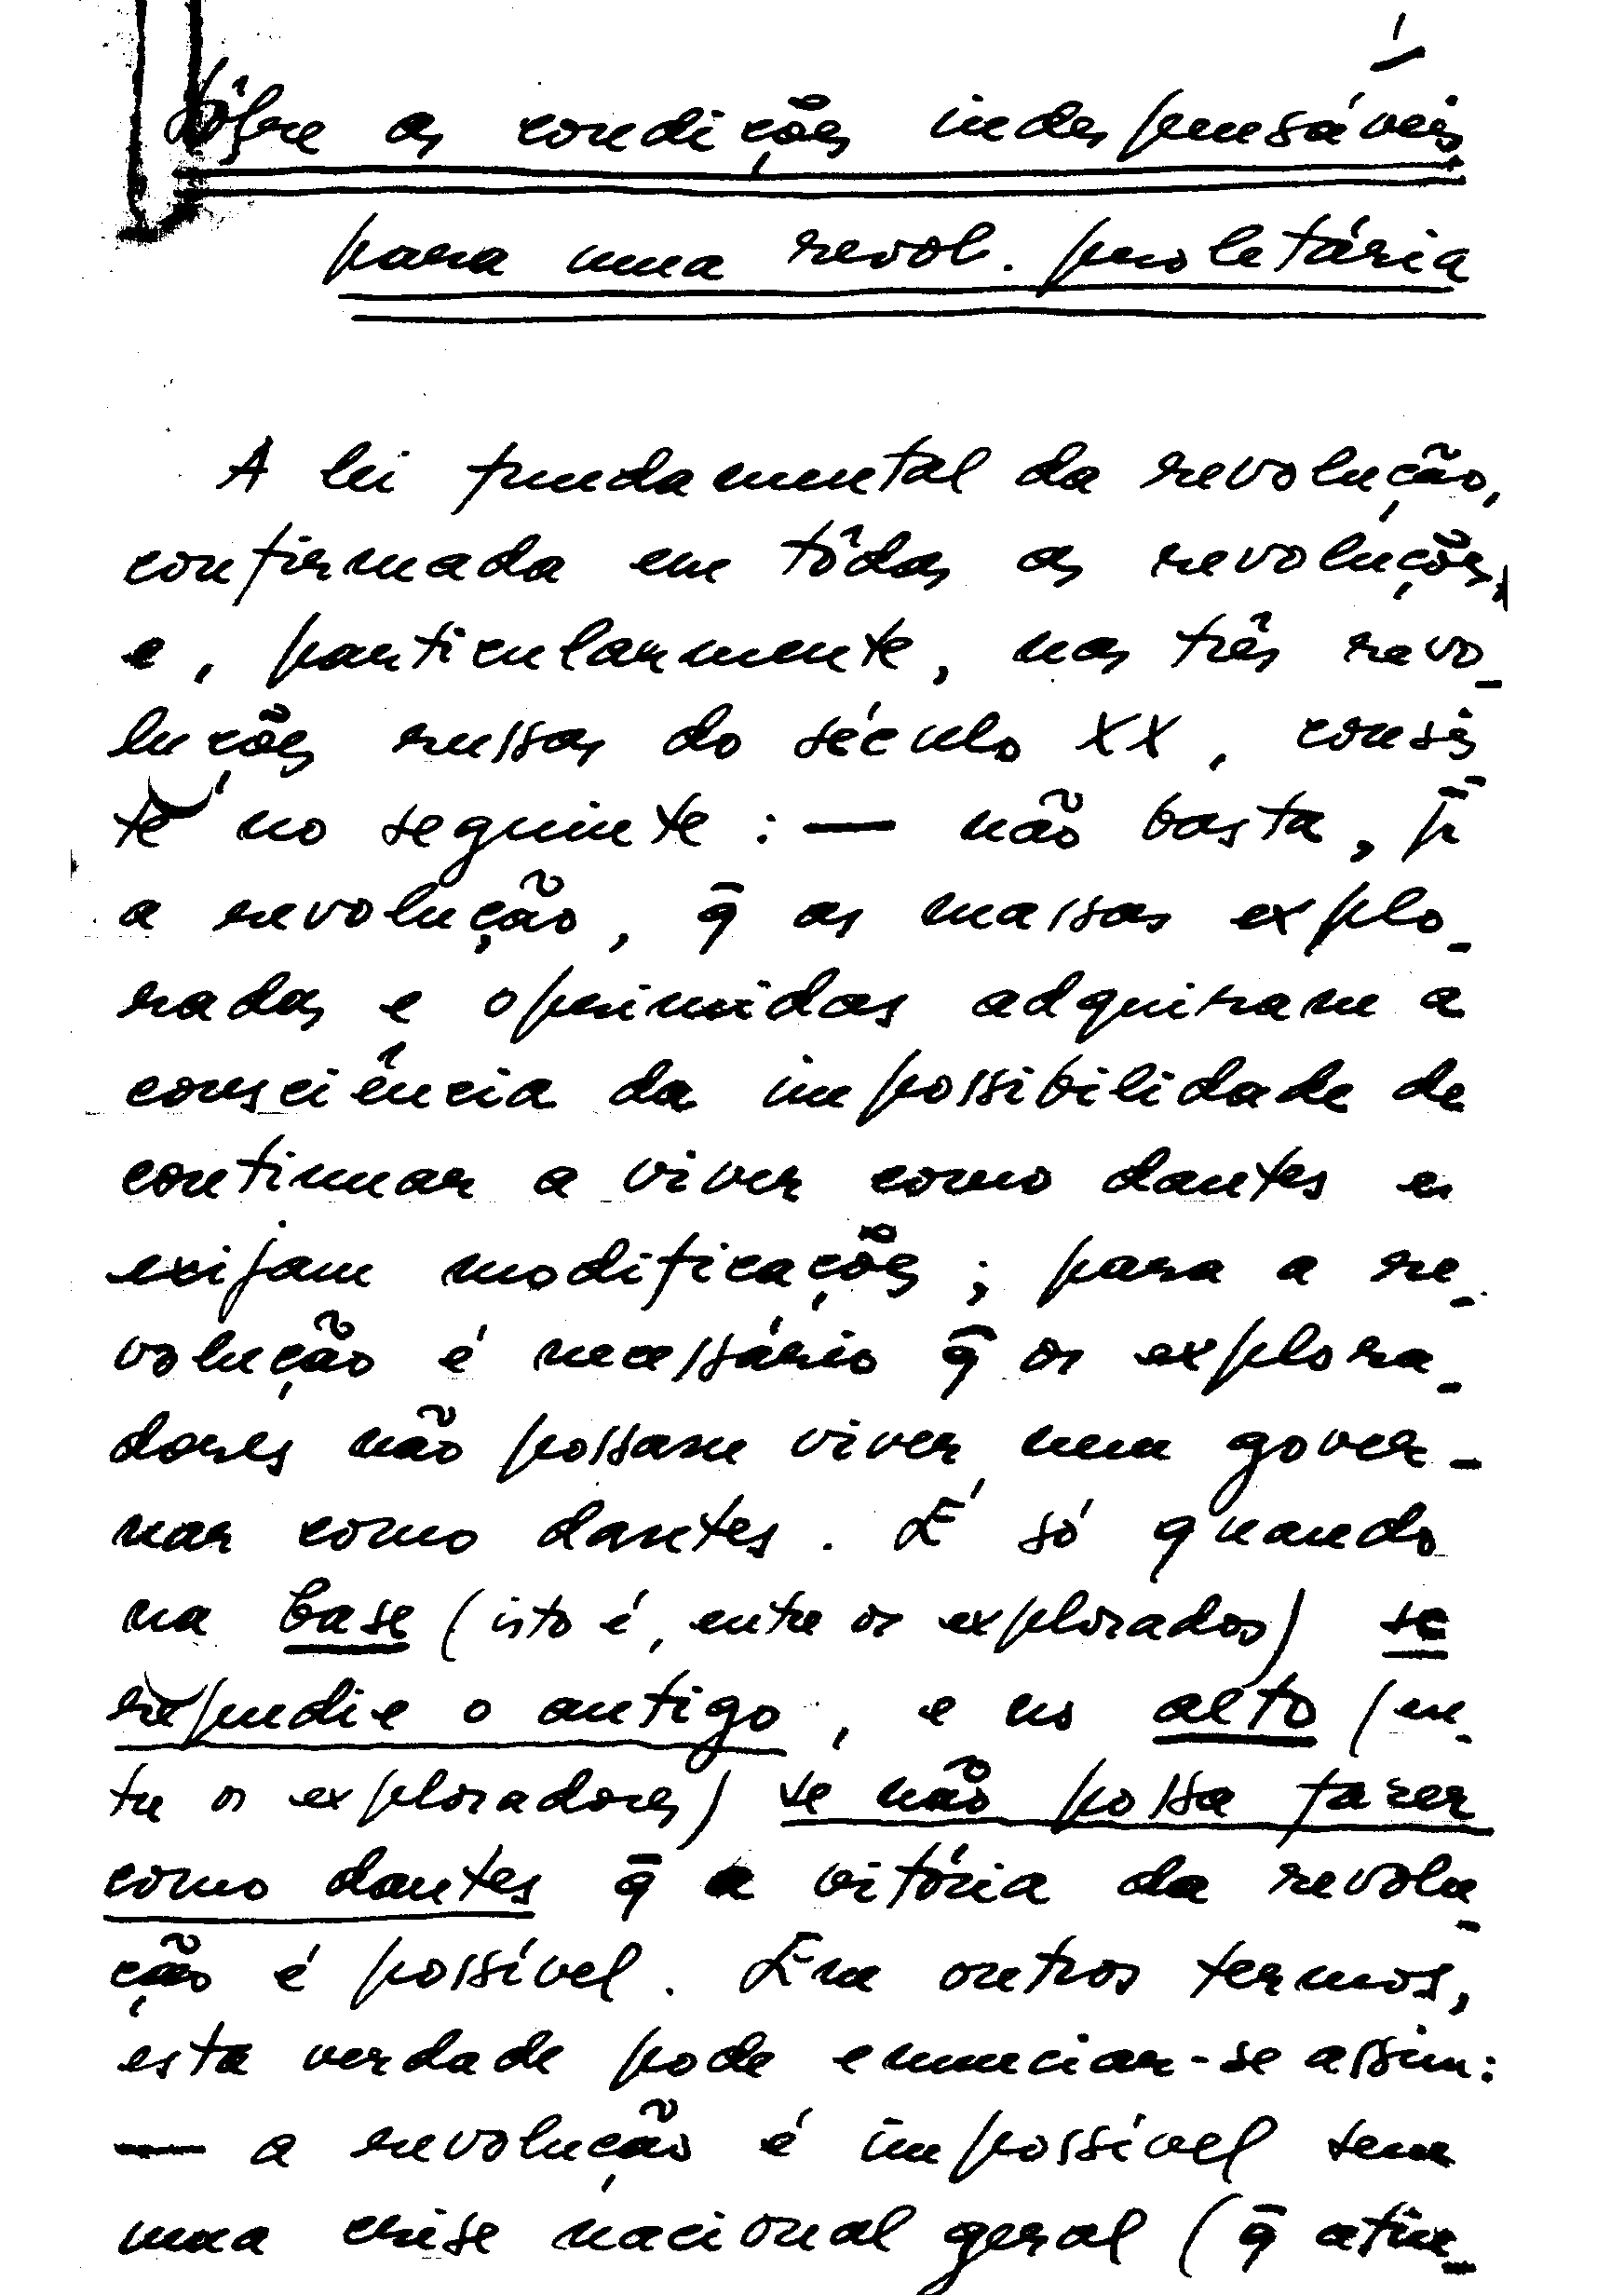 1
Sôbre as condições indespensáveis
para uma revol. proletária
A lei fundamental da revolução,
confirmada em tôdas as revoluções,
e, particularmente, nas três revo-
luções russas do século XX, consis
te no seguinte : — não basta, p̄
a revolução, q̄ as massas explo-
radas e oprimidas adquiram a
consciência da impossibilidade de
continuar a viver como dantes e
exijam modificações ; para a re-
volução é necessário q̄ os explora-
dores não possam viver nem gover-
nar como dantes. É só quando
na base (isto é, entre os explorados) se
repudie o antigo, e no alto (en-
tre os exploradores) se não possa fazer
como dantes q̄ a vitória da revolu-
ção é possível. Em outros termos,
esta verdade pode enunciar-se assim:
— a revolução é impossível sem
uma crise nacional geral (q̄ atin-